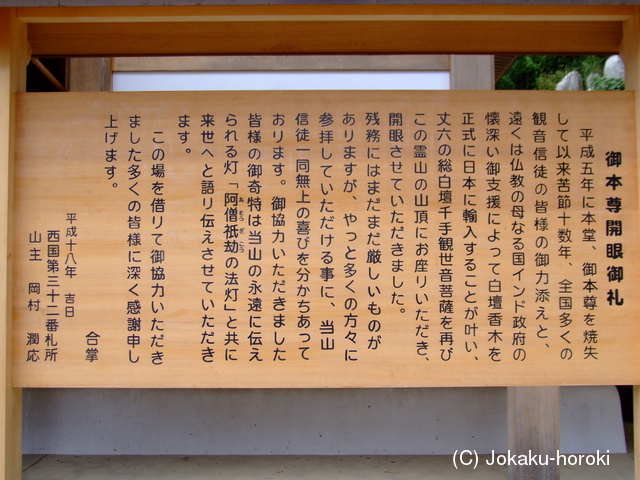 御本尊開眼御礼
平成五年に本堂、御本尊を焼失
して以来苦節十数年、全国多くの
観音信徒の皆様の御力添えと、
遠くは仏教の母なる国インド政府の
懐深い御支援によって白壇香木を
正式に日本に輸入することが叶い、
丈六の総白壇千手観世音菩薩を再び
この霊山の山頂にお座りいただき、
開眼させていただきました。
残務にはまだまだ厳しいものが
ありますが、やっと多くの方々に
参拝していただける事に、当山
信徒一同無上の喜びを分かちあって
おります。御協力いただきました
皆様の御奇特は当山の永遠に伝え
られる灯「阿僧祇劫の法灯」と共に
あそうぎこう
来世へと語り伝えさせていただき
ます。
この場を借りて御協力いただき
ました多くの皆様に深く感謝申し
上げます。
合掌
平成十八年 吉日
西国第三十二番札所
山主 岡村 潤応
(C) Jokaku-horoki